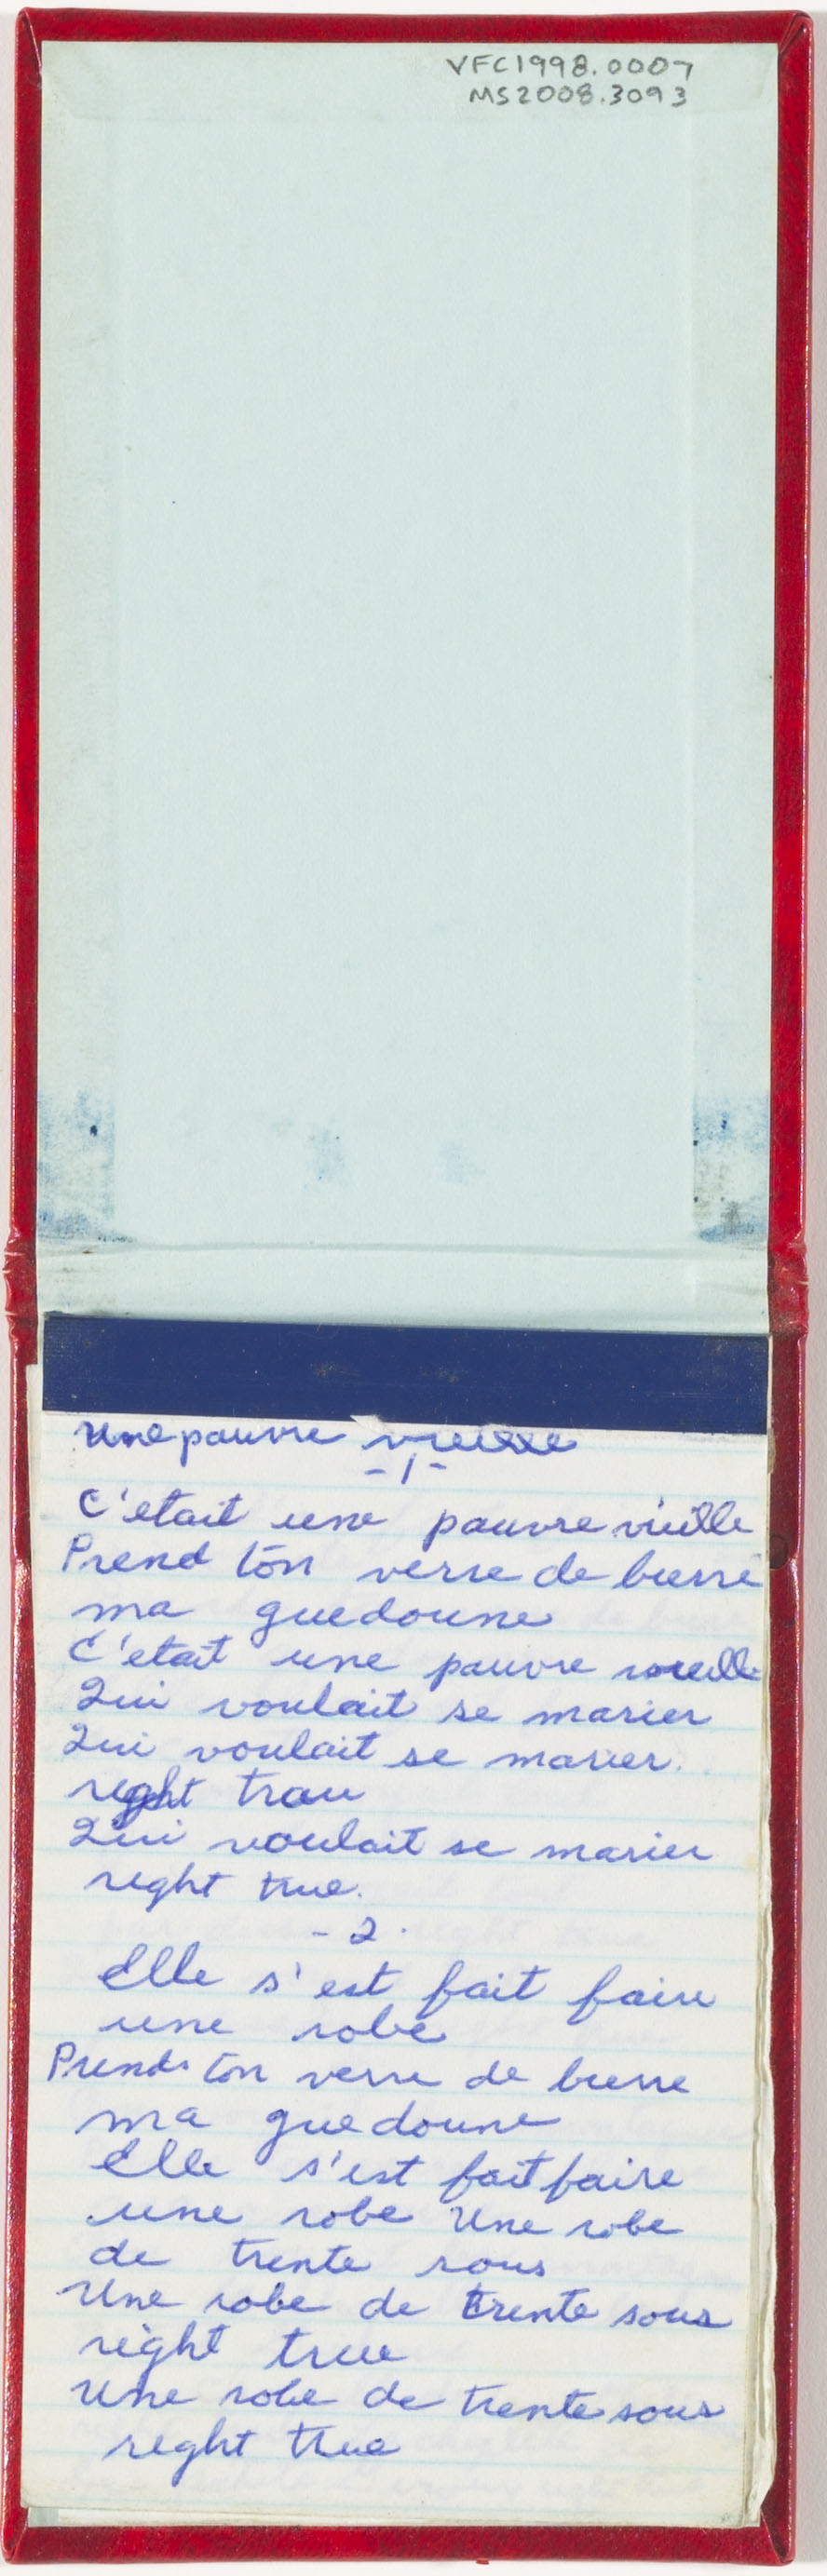 VFC1998.0007
MS2008.3093
Une pauvre vieille
-1-
C'etait une pauvre vieille
Prend ton verre de bierre
ma guedoune
C'etait une pauvre vieille
Qui voulait se marier
Qui voulait se marier.
right trou
Qui voulait se marier
right true.
-2.
Elle s'est fait faire
une robe
Prends ton verre de bierre
ma guedoune
Elle s'est fait faire
une robe Une robe
de trente sous
Une robe de trente sous
right true
Une robe de trente sous
right true